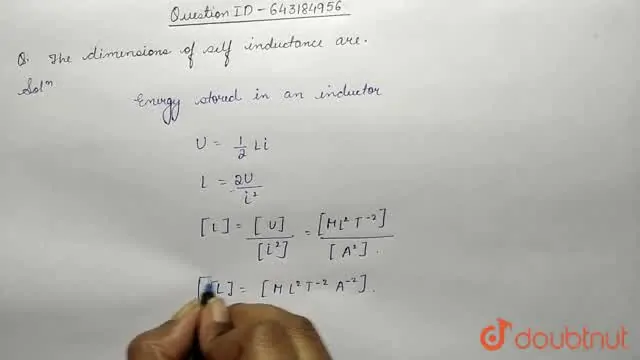 Question ID - 643184956
Q. The dimensions of self inductance are.
Solⁿ
Energy stored in an inductor
U = 1/2 Li
L = 2U/i²
[L] = [U]/[i²] = [ML²T⁻²]/[A²].
[L] = [ML²T⁻²A⁻²].
doubtnut